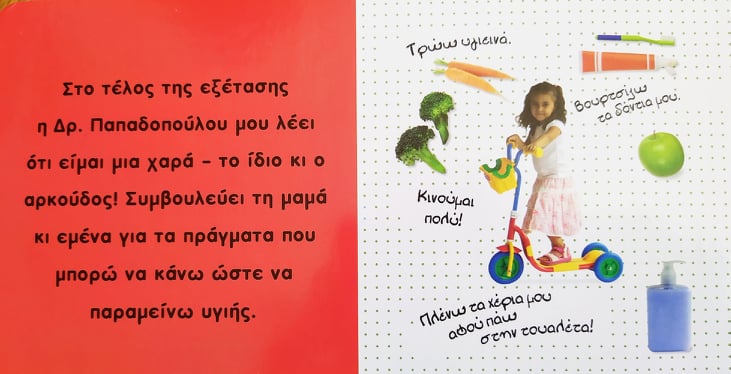 Στο τέλος της εξέτασης
η Δρ. Παπαδοπούλου μου λέει
ότι είμαι μια χαρά – το ίδιο κι ο
αρκούδος! Συμβουλεύει τη μαμά
κι εμένα για τα πράγματα που
μπορώ να κάνω ώστε να
παραμείνω υγιής.
Τρώω υγιεινά.
Βουρτσίζω
τα δόντια μου.
Κινούμαι
πολύ!
Πλένω τα χέρια μου
αφού πάω
στην τουαλέτα!